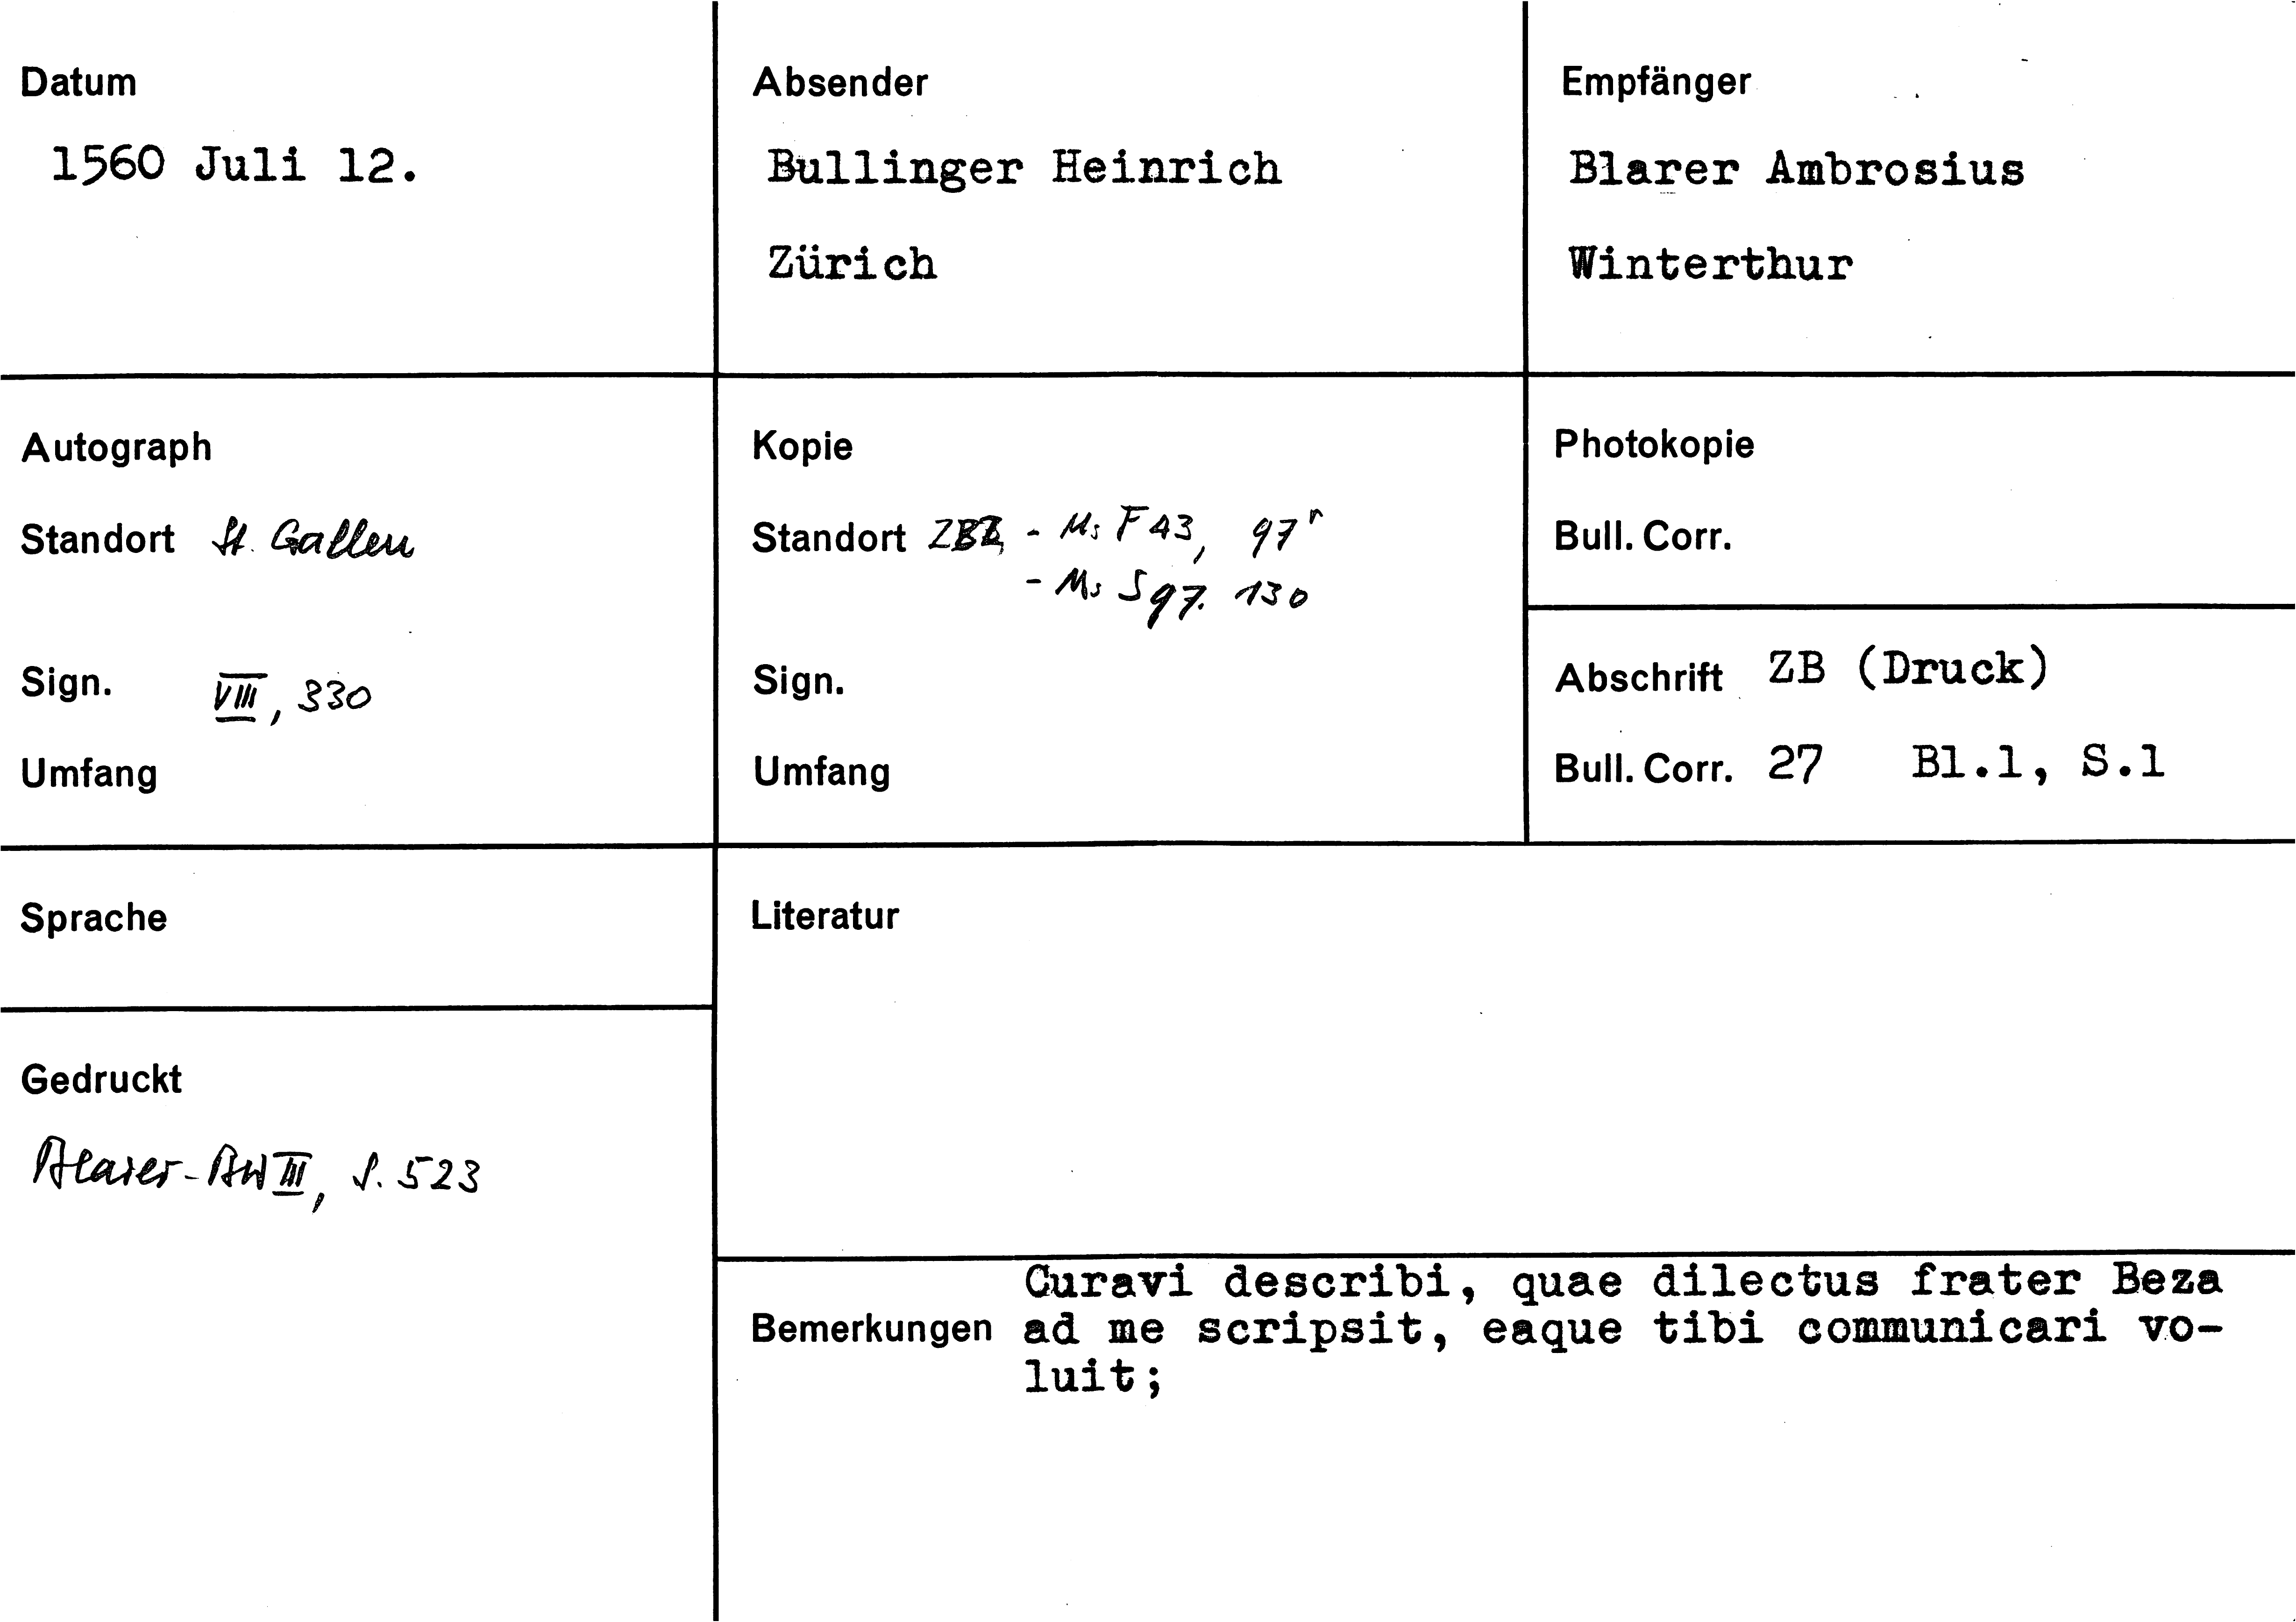 Datum
1560 Juli 12.
Absender
Bullinger Heinrich
Zürich
Empfänger
Blarer Ambrosius
Winterthur
Autograph
Standort St. Gallen
Sign. VIII, 330
Umfang
Kopie
Standort ZBZ - Ms F 43, 97r
- Ms S 97. 130
Sign.
Umfang
Photokopie
Bull. Corr.
Abschrift ZB (Druck)
Bull. Corr. 27 Bl.1, S.1
Sprache
Literatur
Gedruckt
Blarer-BW III, S. 523
Bemerkungen
Curavi describi, quae dilectus frater Beza
ad me scripsit, eaque tibi communicari vo-
luit;